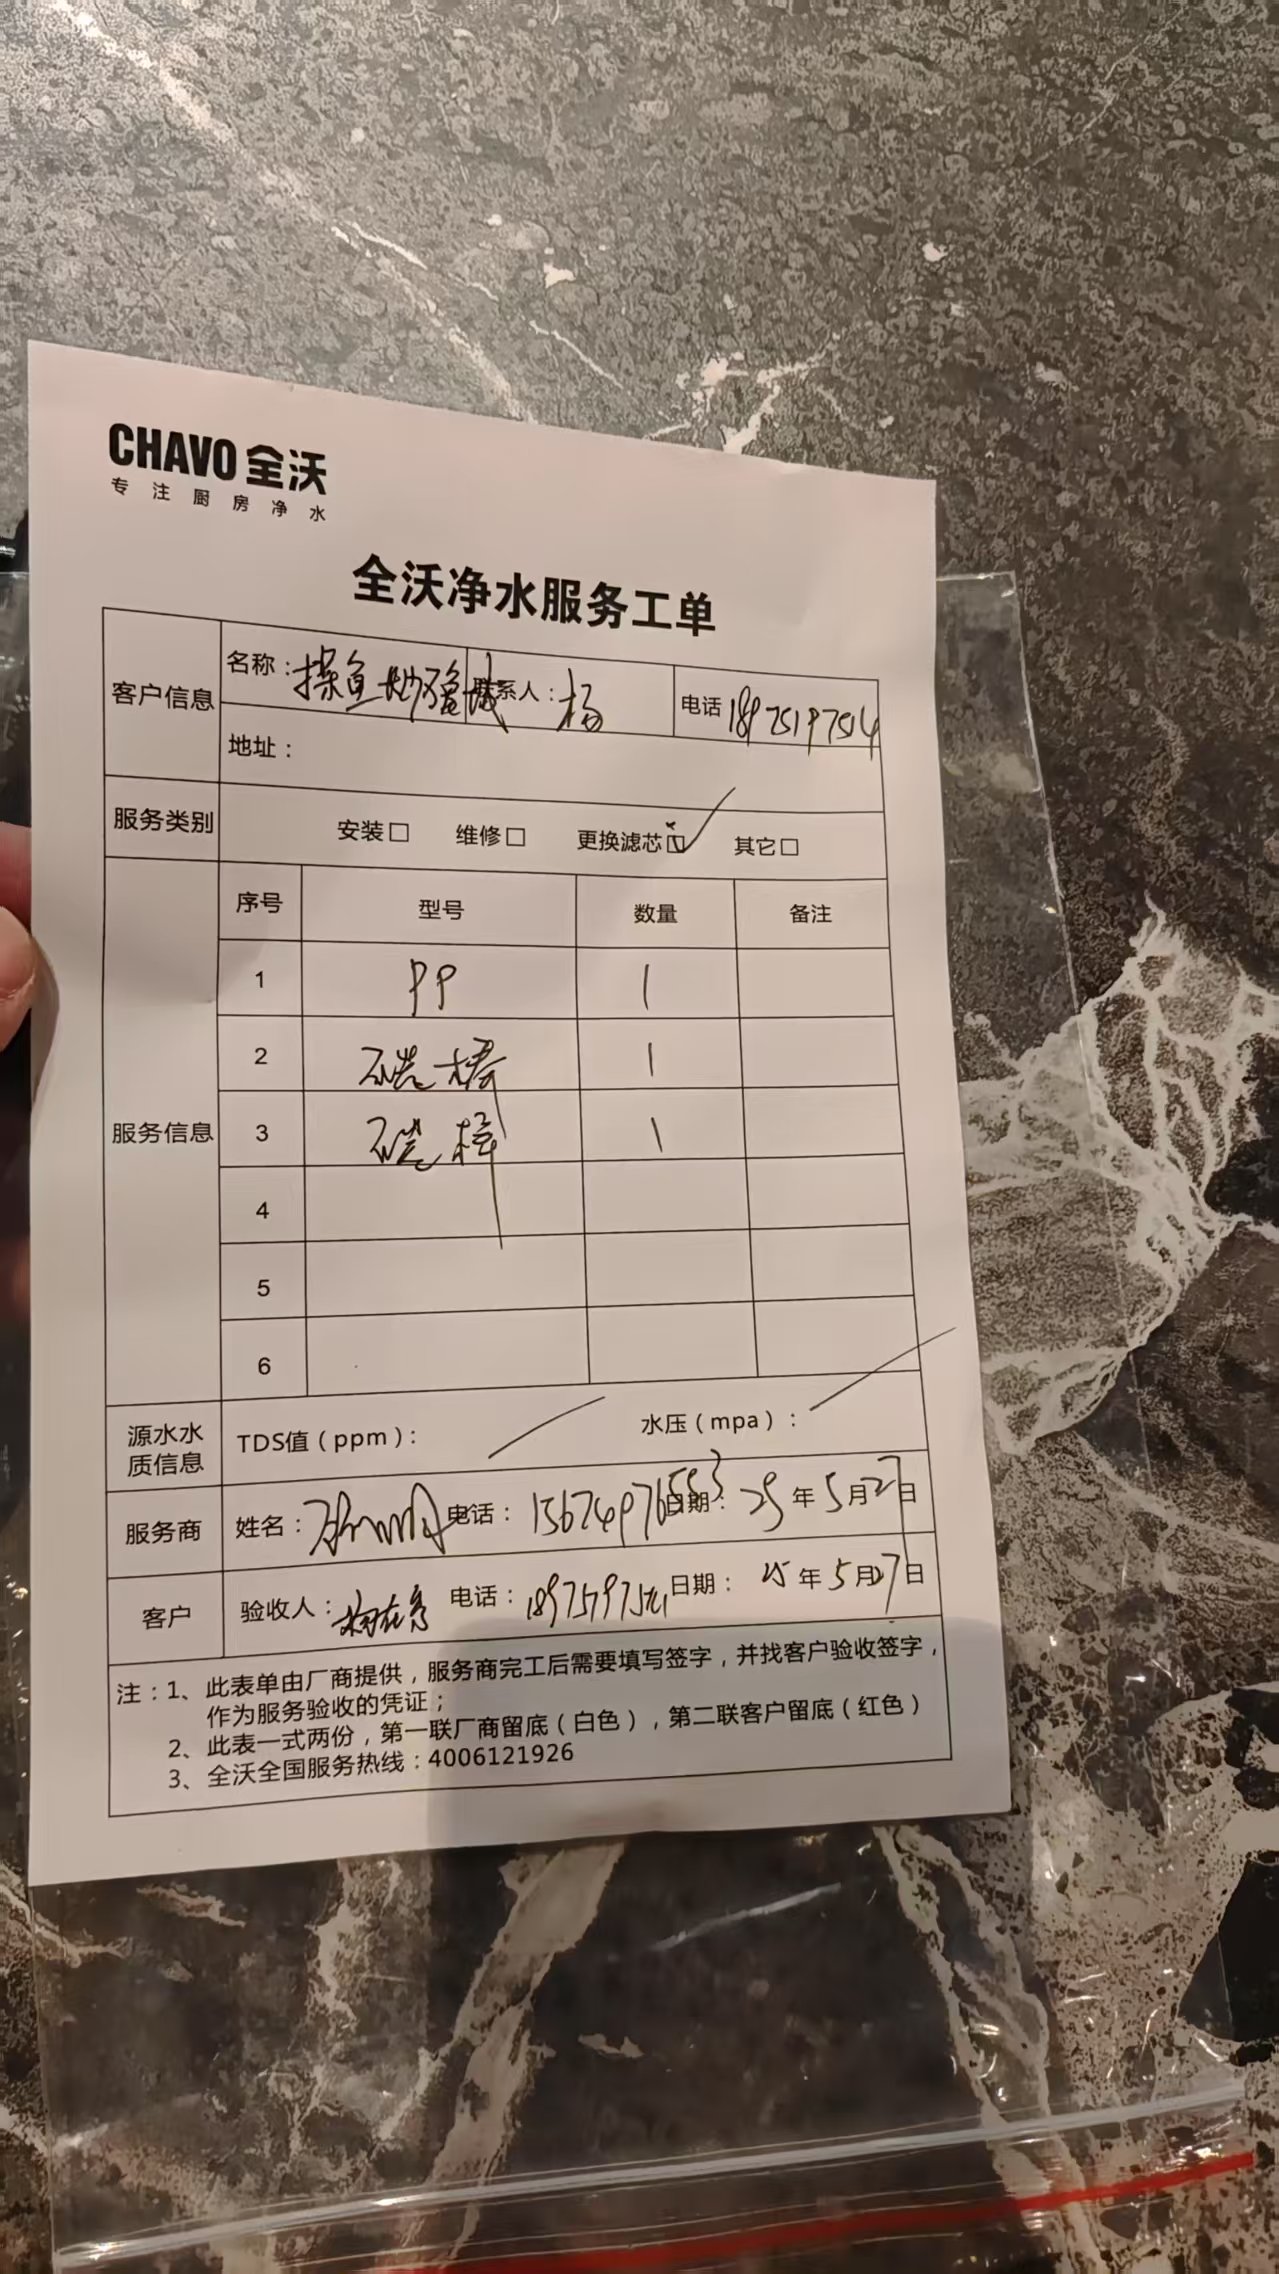 CHAVO 全沃
专注厨房净水
全沃净水服务工单
客户信息 名称：探鱼 联系人：杨 电话 18975197514
地址：
服务类别 安装□ 维修□ 更换滤芯☑ 其它□
服务信息
序号 型号 数量 备注
1 PP 1
2 1
3 1
4
5
6
源水水质信息 TDS值（ppm）： 水压（mpa）：
服务商 姓名： 电话：15674976553 日期：25年5月27日
客户 验收人： 电话： 日期：25年5月27日
注：1、此表单由厂商提供，服务商完工后需要填写签字，并找客户验收签字，
作为服务验收的凭证；
2、此表一式两份，第一联厂商留底（白色），第二联客户留底（红色）
3、全沃全国服务热线：4006121926